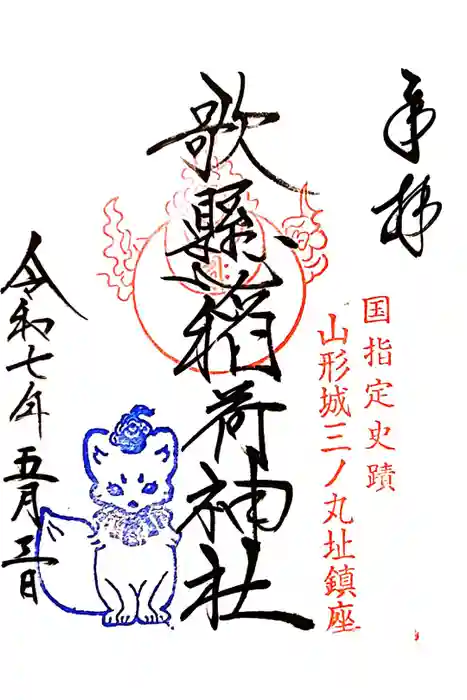 奉拝
国指定史蹟
山形城三ノ丸址鎮座
歌縣稲荷神社
令和七年五月三日